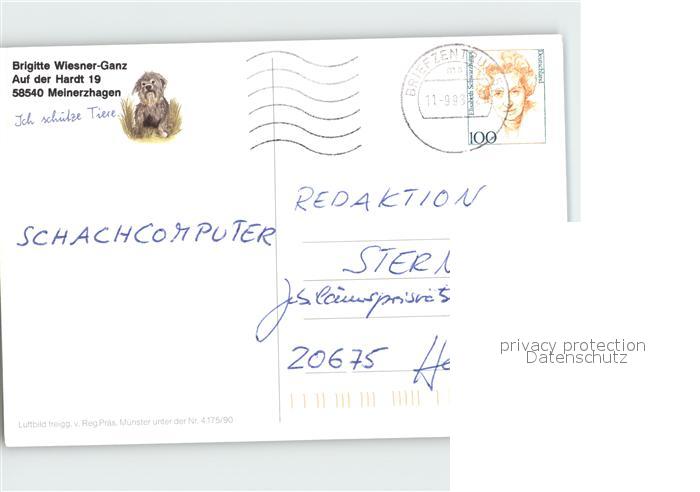 Brigitte Wiesner-Ganz
Auf der Hardt 19
58540 Meinerzhagen
Ich schütze Tiere.
BRIEFZENTRU
11-9.98
Deutschland
Elisabeth Schwarzhaupt
100
REDAKTION
SCHACHCOMPUTER
STERN
Jubiläumspreisräts
20675
privacy protection
Datenschutz
Luftbild freigg. v. Reg.Präs. Münster unter der Nr. 4.175/90